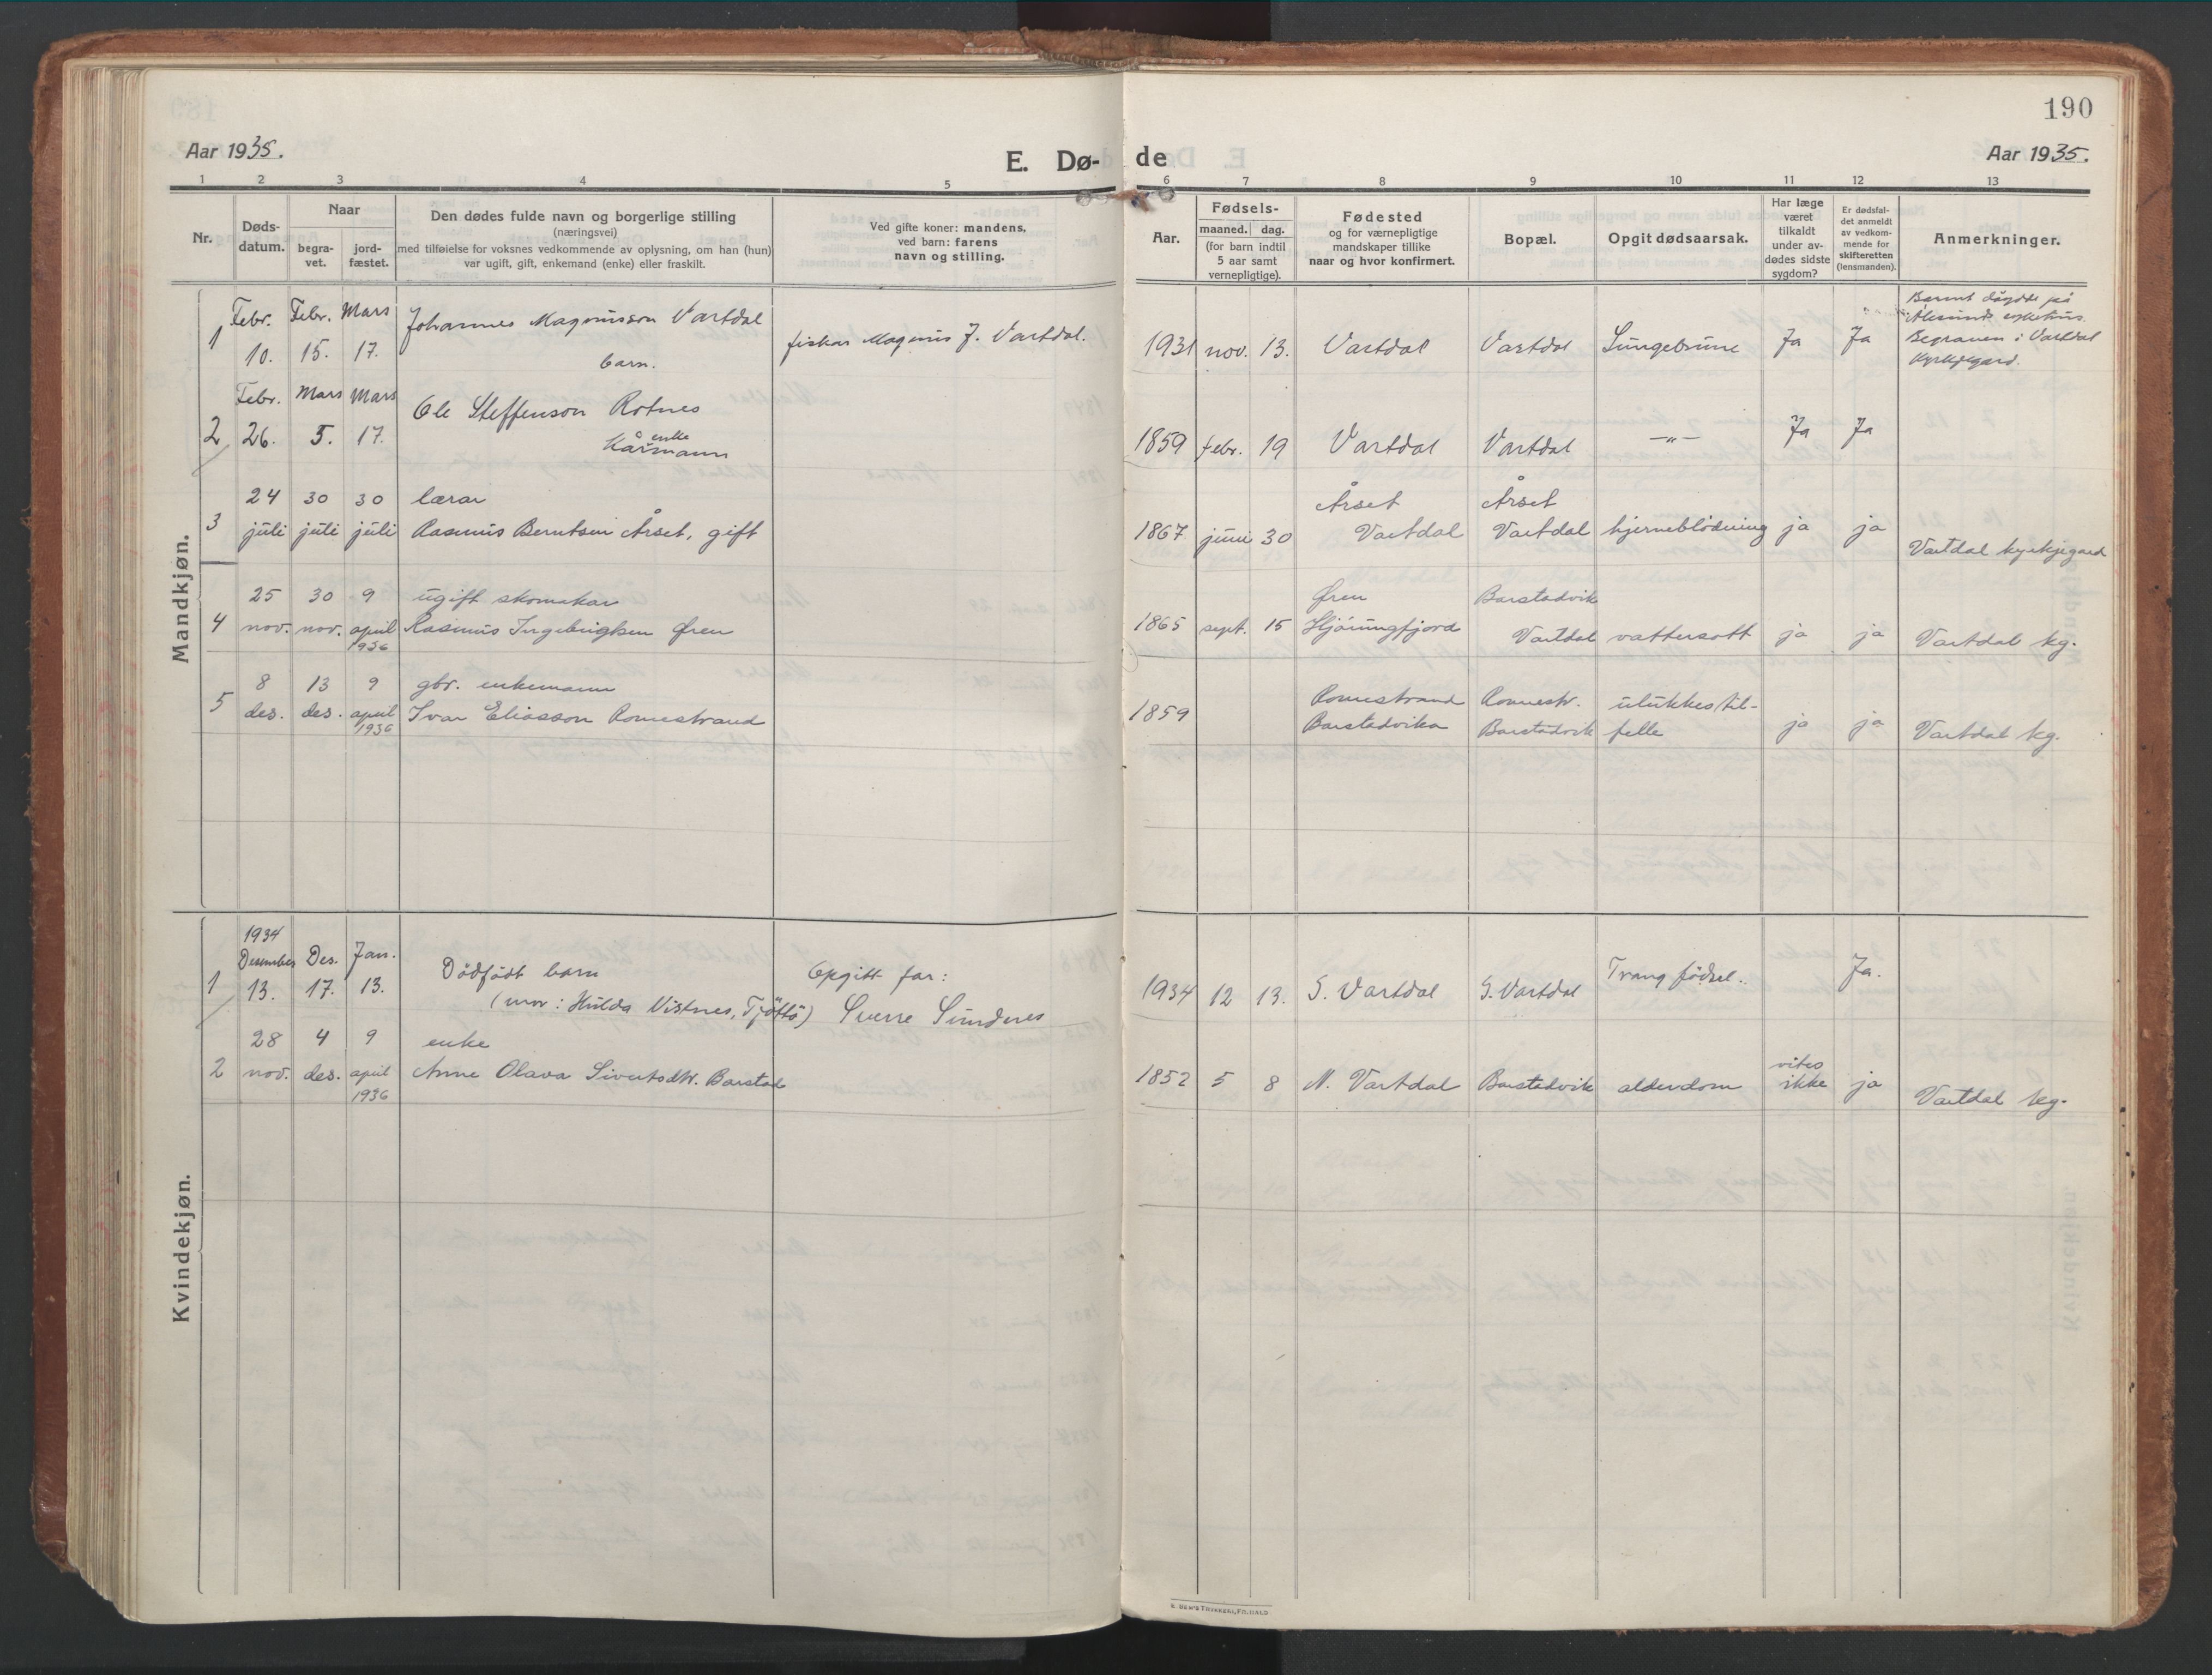 190
Aar 1935.
E. Dø-
de
Aar 1935.
1 2 3 4 5 6 7 8 9 10 11 12 13
Nr.
Døds-
datum.
Naar
begra-
vet.
jord-
fæstet.
Den dødes fulde navn og borgerlige stilling
(næringsvei)
med tilføielse for voksnes vedkommende av oplysning, om han (hun)
var ugift, gift, enkemand (enke) eller fraskilt.
Ved gifte koner: mandens,
ved barn: farens
navn og stilling.
Aar.
Fødsels-
maaned. dag.
(for barn indtil
5 aar samt
vernepligtige).
Fødested
og for værnepligtige
mandskaper tillike
naar og hvor konfirmert.
Bopæl.
Opgit dødsaarsak.
Har læge
været
tilkaldt
under av-
dødes sidste
sygdom?
Er dødsfal-
det anmeldt
av vedkom-
mende for
skifteretten
(lensmanden).
Anmerkninger.
Mandkjøn.
1 Febr. Febr. Mars Johannes Magnusson Vartdal
10. 15. 17. barn.
fiskar Magnus J. Vartdal.
1931 nov. 13. Vartdal Vartdal Lungebrune Ja Ja
Barnet døydde på
Ålesund sykehus.
Begraven i Vartdal
Kyrkjegard.
2 Febr. Mars Mars Ole Steffenson Rotnes
26. 5. 17. enke
Kårmann
1859 febr. 19 Vartdal Vartdal —„— Ja Ja
24 30 30 lærar
3 juli juli juli Rasmus Berntsen Årset, gift
Årset Årset
1867 juni 30 Vartdal Vartdal hjerneblödning ja ja Vartdal kyrkjegard
25 30 9 ugift skomakar
4 nov. nov. april Rasmus Ingebrigtsen Øren
1936
Øren Barstadvik
1865 sept. 15 Hjörungfjord Vartdal vattersott ja ja Vartdal kg.
8 13 9 gbr. enkemann
5 des. des. april Ivar Eliasson Romestrand
1936
Romestrand Romestr. ulukkestil-
1859 Barstadvika Barstadvik felle ja ja Vartdal kg.
Kvindekjøn.
1934
Desember Des. Jan. Dödfödt barn
1 13. 17. 13. (mor: Hulda Vistnes, Tjöttö)
Opgitt far:
Sverre Sundnes
1934 12 13. S. Vartdal S. Vartdal Trang födsel. Ja.
28 4 9 enke
2 nov. des. april Anne Olava Sivertsdtr. Barstad
1936
1852 5 8 N. Vartdal Barstadvik alderdom vites
ikke ja Vartdal kg.